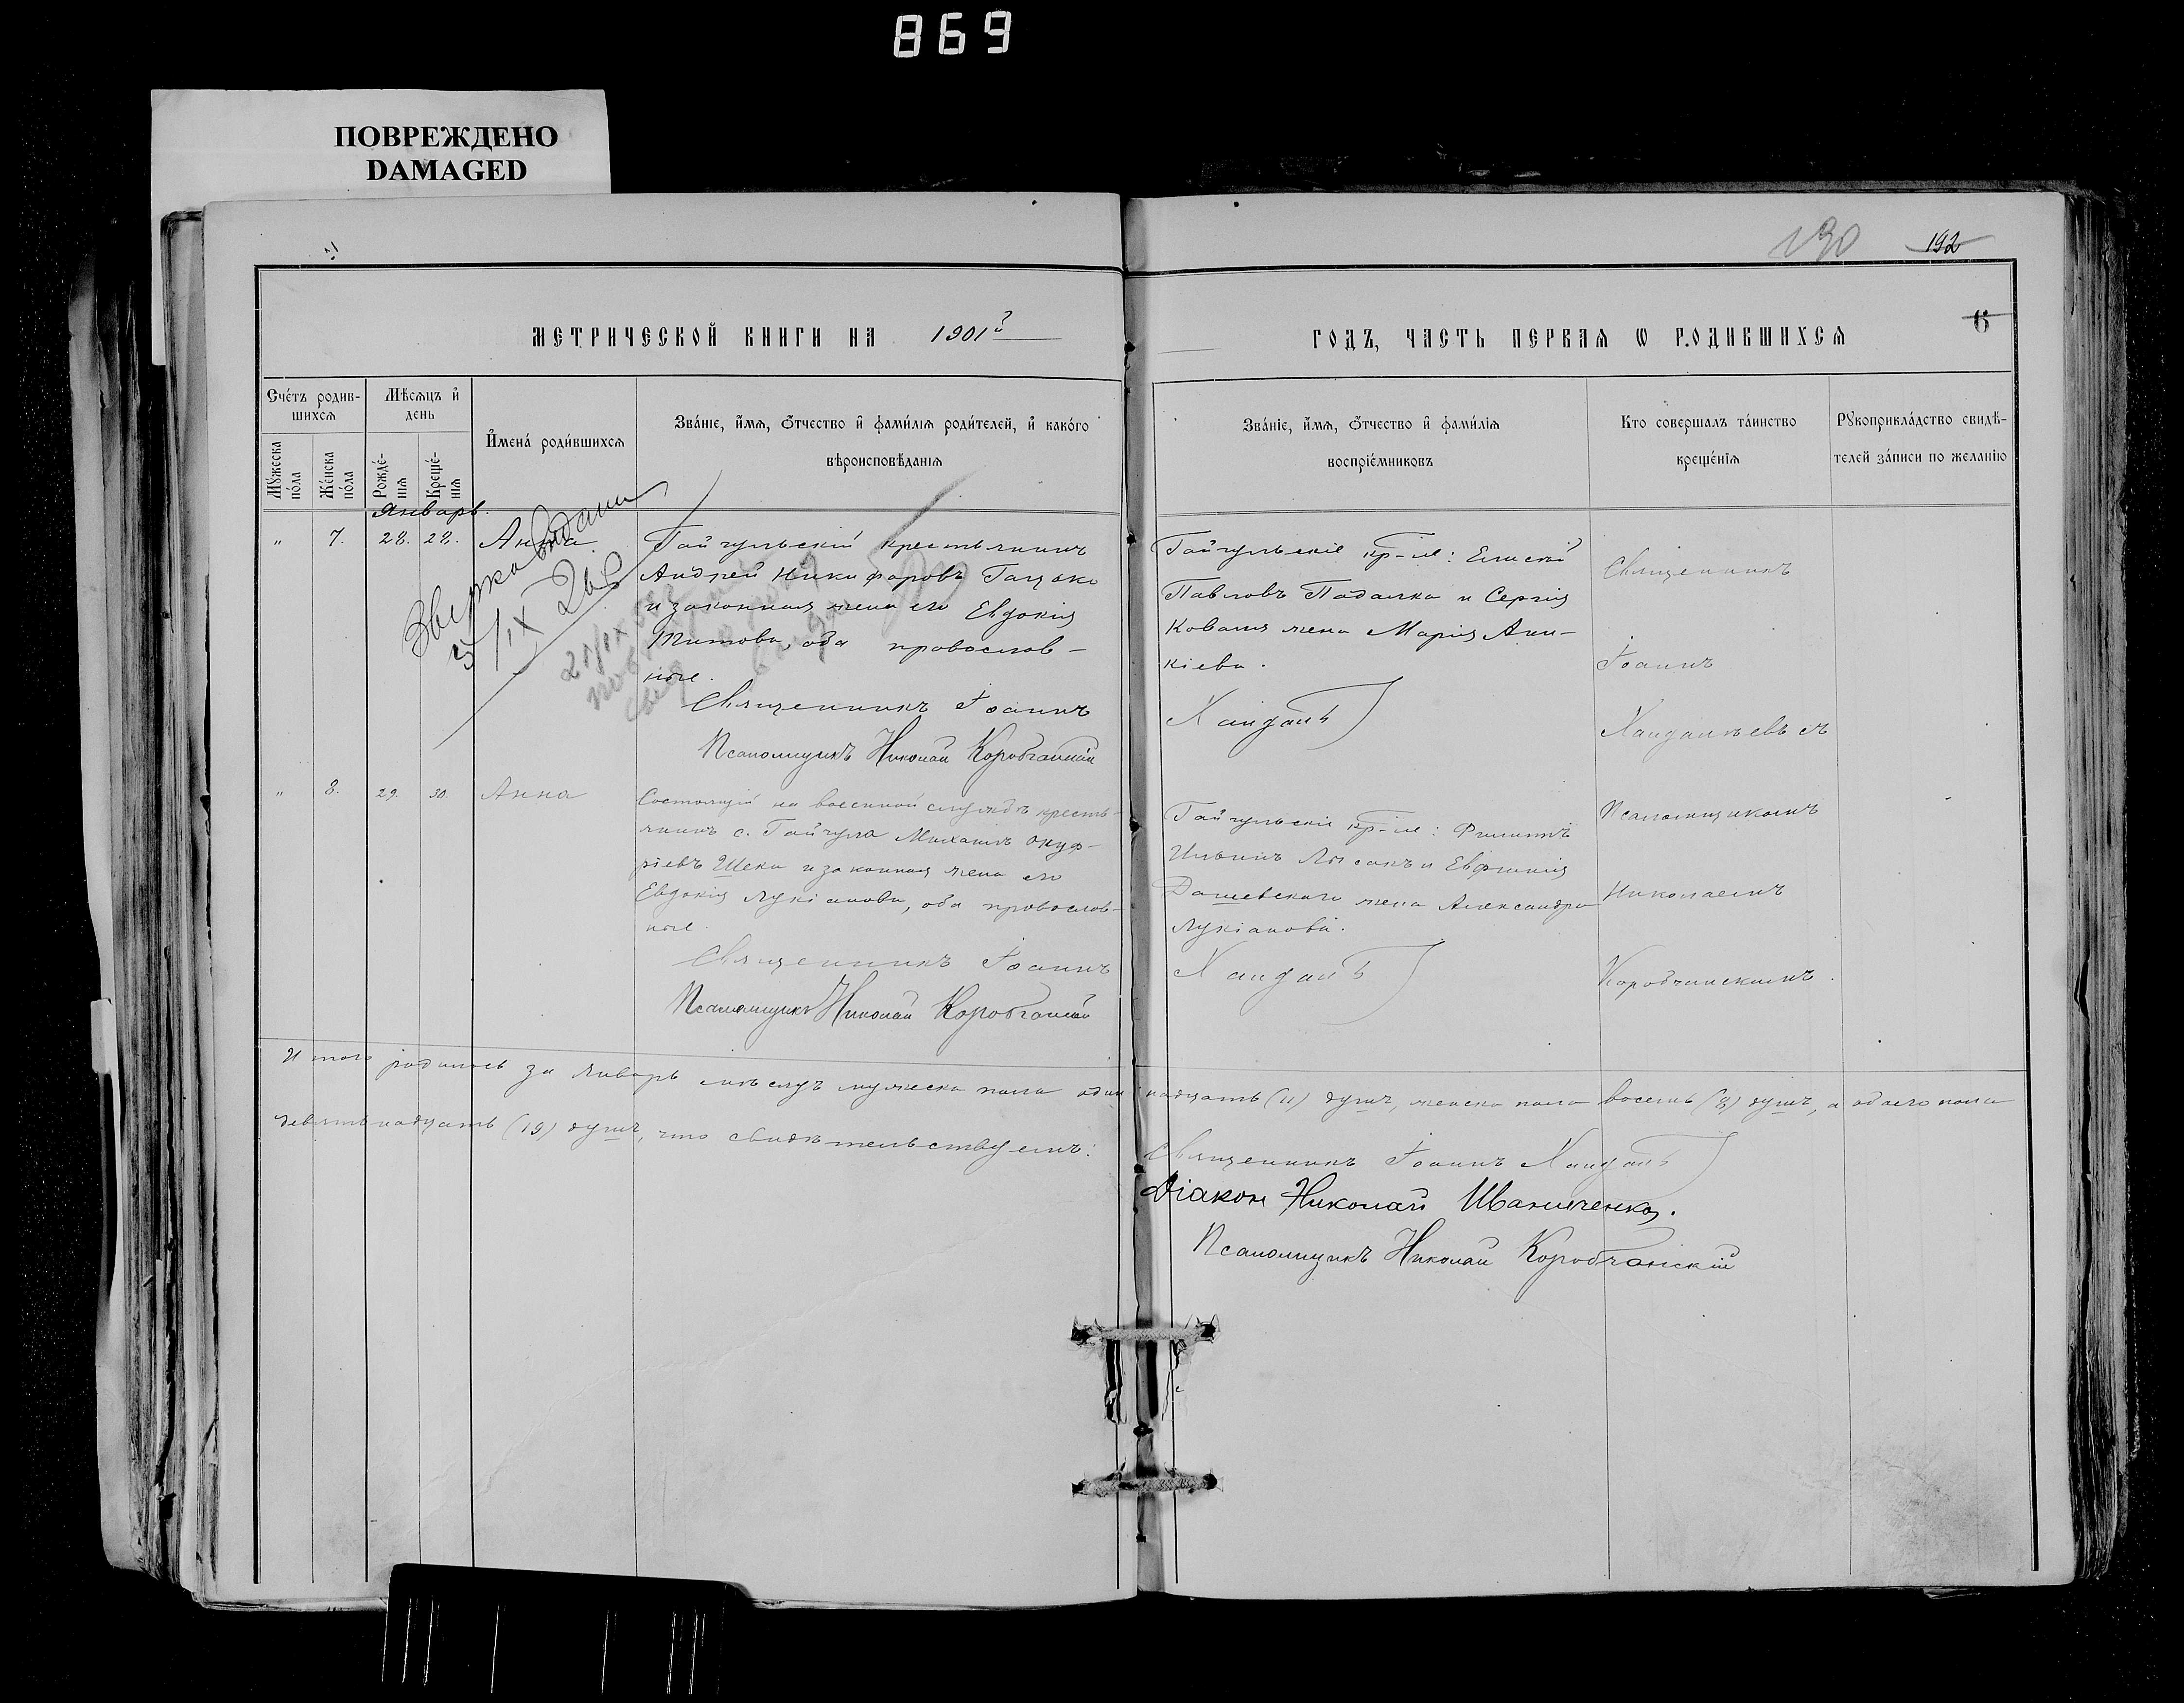 869
ПОВРЕЖДЕНО
DAMAGED
190 192
6
МЕТРИЧЕСКОЙ КНИГИ НА 1901й ГОДЪ, ЧАСТЬ ПЕРВАЯ Ѡ РОДИВШИХСЯ
Счетъ родив-
шихся
Мужеска
пола
Женска
пола
Мѣсяцъ и
день
Рожде-
нія
Креще-
нія
Имена родившихся
Званіе, имя, отчество и фамилія родителей, и какого
вѣроисповѣданія
Званіе, имя, отчество и фамилія
воспріемниковъ
Кто совершалъ таинство
крещенія
Рукоприкладство свидѣ-
телей записи по желанію
Январь.
" 7. 28. 28. Анна.
3/IX 26
Гайчульскій крестьянинъ
Андрей Никифоровъ Гацько
и законная жена его Евдокія
Титова, оба православ-
ные.
Священникъ Іоаннъ
Псаломщикъ Николай Коробчанскій
Гайчульскіе кр-не:
Павловъ Падалка и Сергія
Коваля жена Марія Ани-
кіева.
Хандалѣ
Священникъ
Іоаннъ
" 8. 29. 30. Анна
Состоящій на военной службѣ кресть-
янинъ с. Гайчула Михаилъ Онуф-
ріевъ Шека и законная жена его
Евдокія Лукіанова, оба православ-
ные.
Священникъ Іоаннъ
Псаломщикъ Николай Коробчанскій
Гайчульскіе кр-не: Филиппъ
Ильинъ Лысакъ и Евфимія
Дашевскаго жена Александра
Лукіанова.
Хандалѣ
Псаломщикомъ
Николаемъ
Коробчанскимъ.
Итого родилось за Январь мѣсяцъ мужеска пола одиннадцать (11) душъ, женска пола восемь (8) душъ, а обоего пола
девятьнадцать (19) душъ, что свидѣтельствуемъ:
Священникъ Іоаннъ Хандалѣ
Діаконъ Николай Иваниченко.
Псаломщикъ Николай Коробчанскій